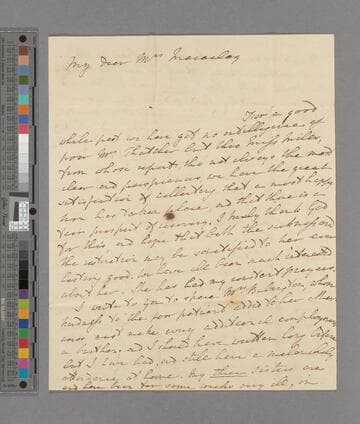 My dear Mrs Macaulay
For a good
while past we have got no intelligence of
poor Mrs Thatcher but thro' Miss Mills,
from whose reports tho not always the most
clear and perspicuous, we have the great
satisfaction of collecting that a most happy
turn has taken place and that there is every
fair prospect of recovery, I truly thank God
for this and hope that both the sickness and
the restoration may be sanctified to her ever
lasting good. We have all been much interested
about her. She has had my constant prayers.
I wrote to you to spare Mrs whose
kindness to the poor patient added to her other
cares must make every additional employment
a burthen, and I should have written long before
but I have had, and still have a melancholy
attendance at home. My three sisters are
and have been for some weeks very ill, on